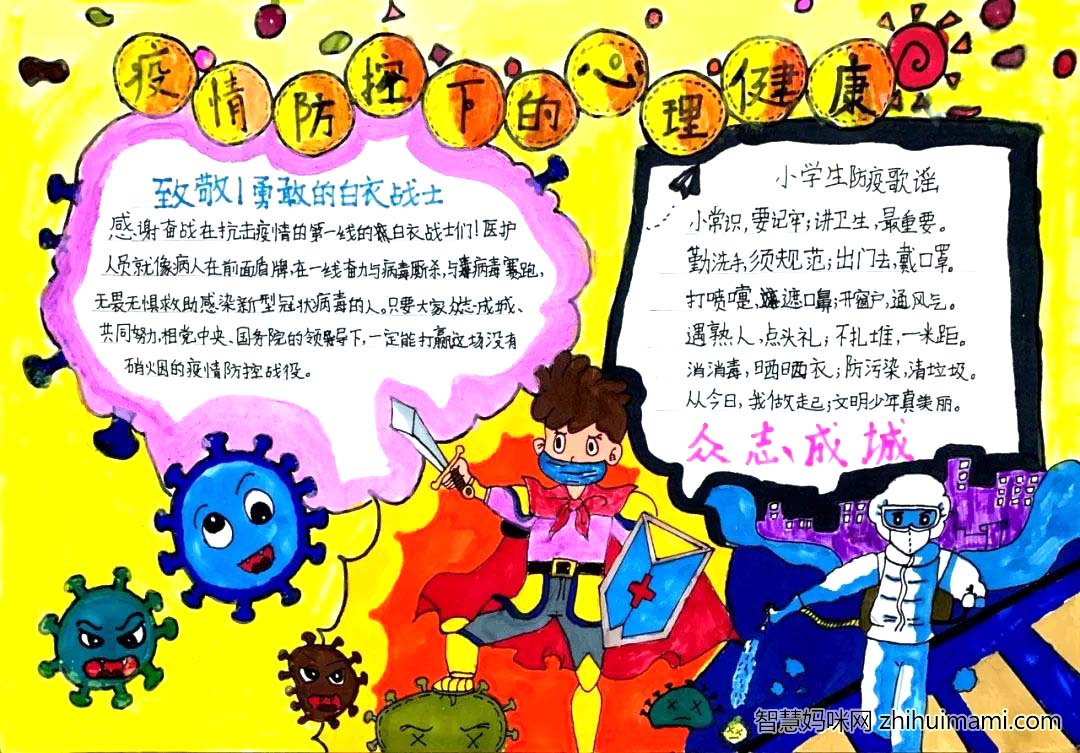 疫情防控下的心理健康
致敬！勇敢的白衣战士
感谢奋战在抗击疫情的第一线的白衣战士们！医护
人员就像病人在前面盾牌，在一线奋力与病毒厮杀，与毒病毒赛跑，
无畏无惧救助感染新型冠状病毒的人。只要大家众志成城、
共同努力，相党中央、国务院的领导下，一定能打赢这场没有
硝烟的疫情防控战役。
小学生防疫歌谣
小常识，要记牢；讲卫生，最重要。
勤洗手，须规范；出门去，戴口罩。
打喷嚏，遮口鼻；开窗户，通风气。
遇熟人，点头礼；不扎堆，一米距。
消消毒，晒晒衣；防污染，清垃圾。
从今日，我做起；文明少年真美丽。
众志成城
智慧妈咪网 zhihuimami.com